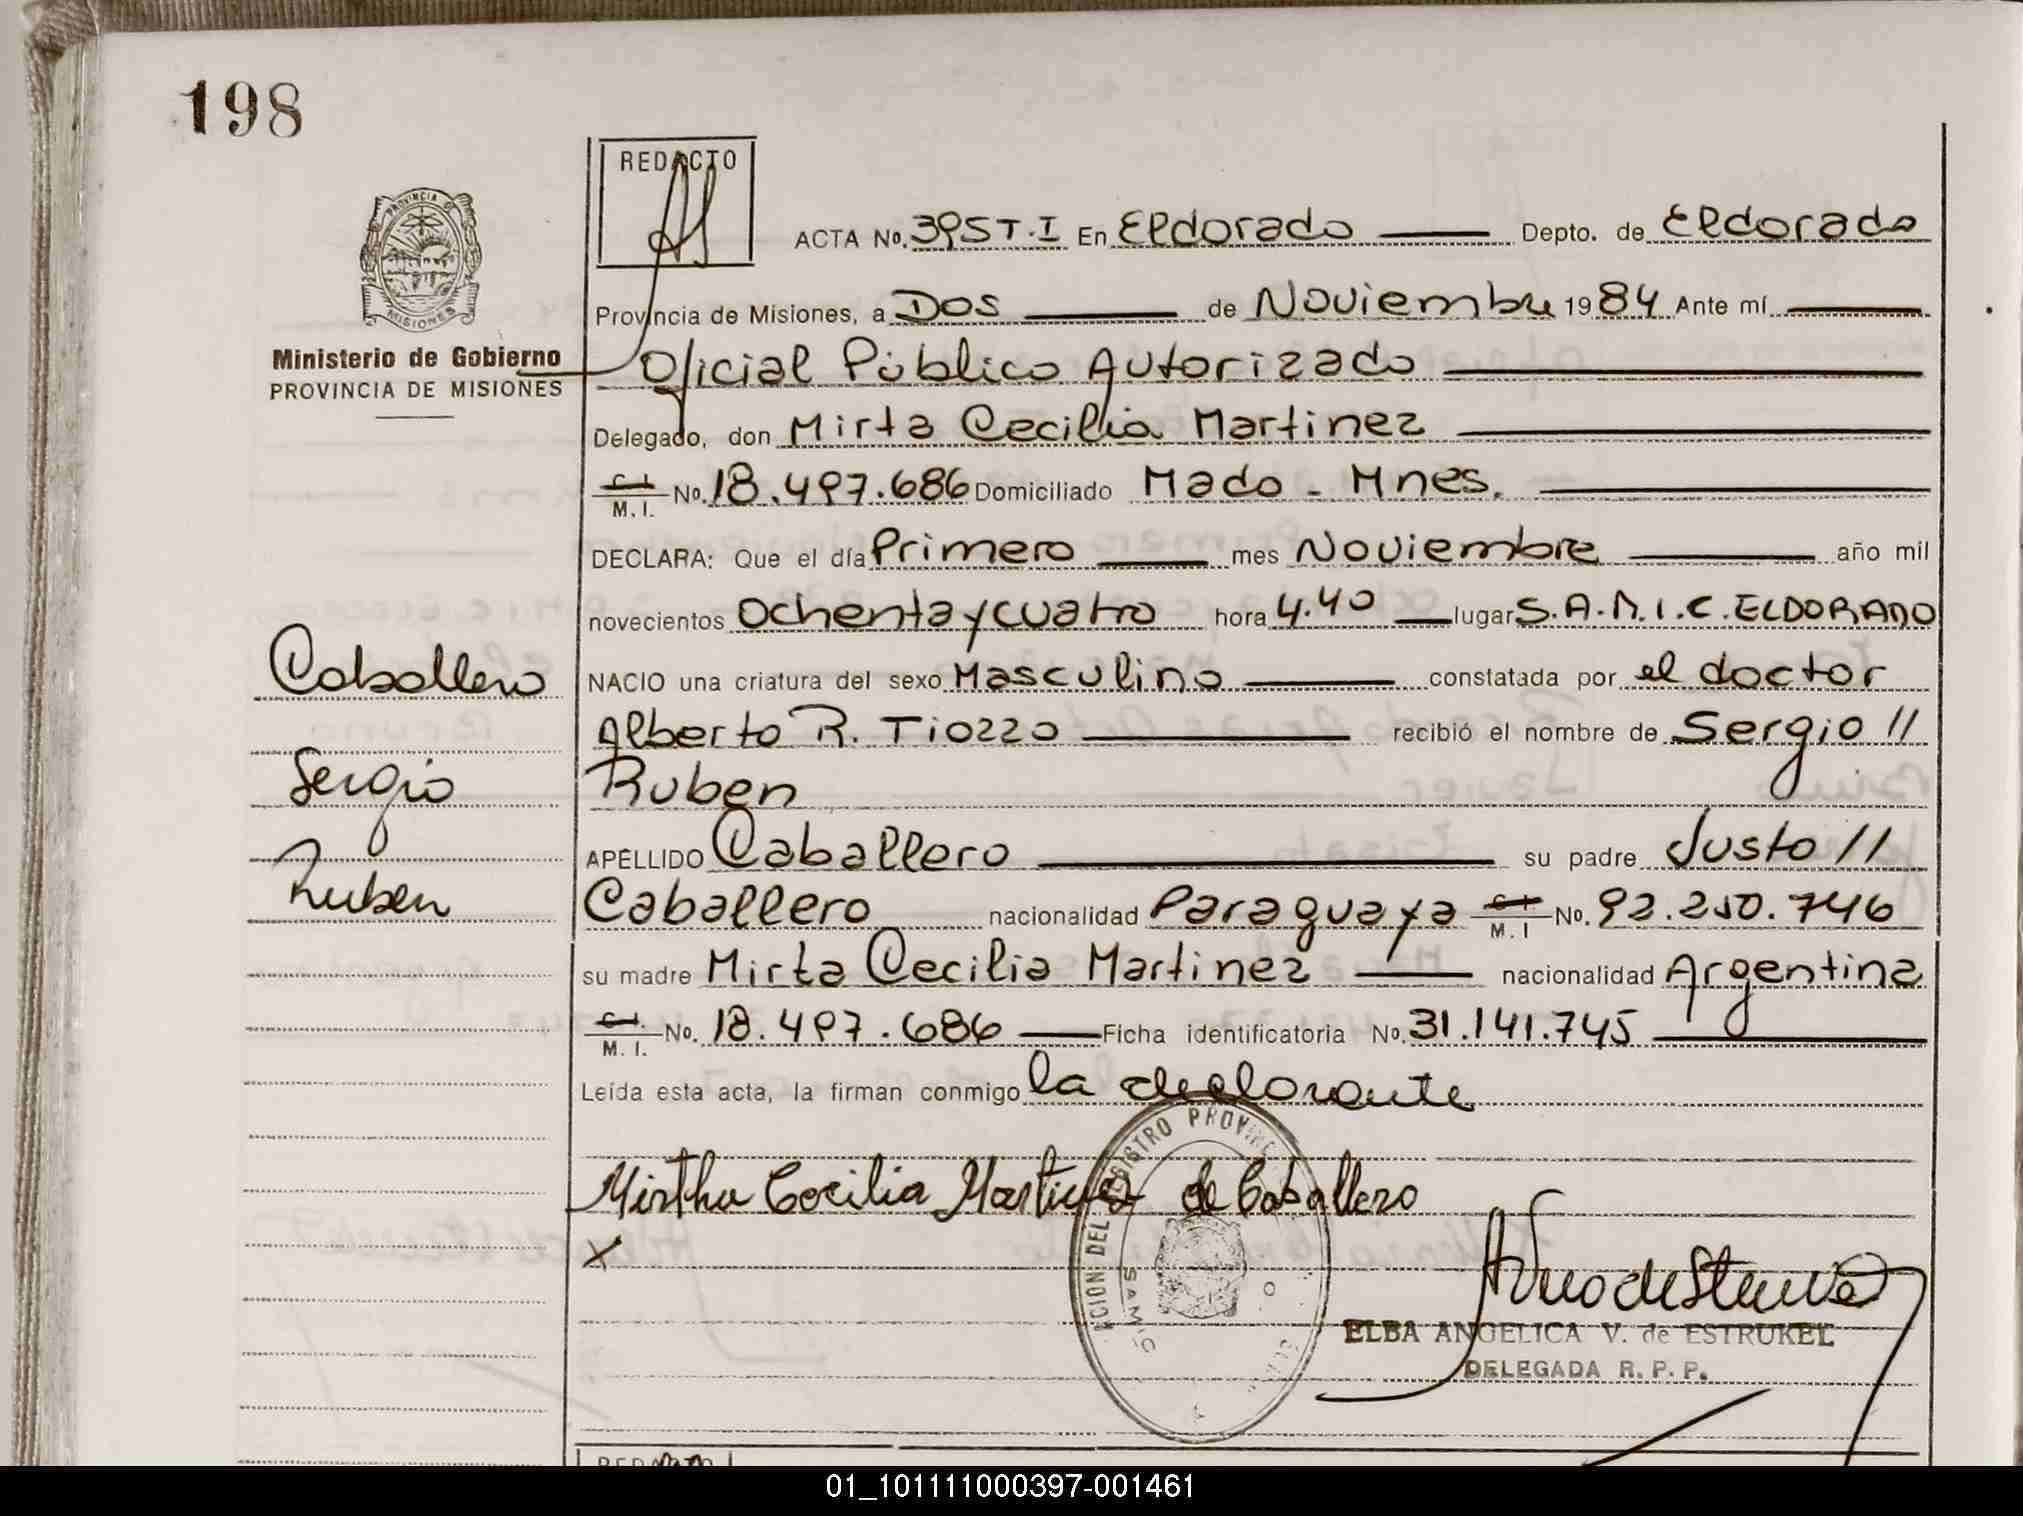 198
REDACTO
ACTA No. 395 T.I En Eldorado Depto. de Eldorado
Provincia de Misiones, a Dos de Noviembre 1984 Ante mí
Ministerio de Gobierno
PROVINCIA DE MISIONES
Oficial Público Autorizado
Delegado, don Mirta Cecilia Martinez
C.I. M.I. No. 18.497.686 Domiciliado Mado - Mnes.
DECLARA: Que el día Primero mes Noviembre año mil
novecientos Ochenta y cuatro hora 4.40 lugar S.A.M.I.C. ELDORADO
Caballero
NACIO una criatura del sexo Masculino constatada por el doctor
Alberto R. Tiozzo recibió el nombre de Sergio //
Sergio
Ruben
APELLIDO Caballero su padre Justo //
Ruben
Caballero nacionalidad Paraguaya C.I. M.I No. 92.250.746
su madre Mirta Cecilia Martinez nacionalidad Argentina
C.I. M.I. No. 18.497.686 Ficha identificatoria No. 31.141.745
Leída esta acta, la firman conmigo la declarante
Mirtha Cecilia Martinez de Caballero
X
ELBA ANGELICA V. de ESTRUKEL
DELEGADA R. P. P.
REDACTO
01_101111000397-001461